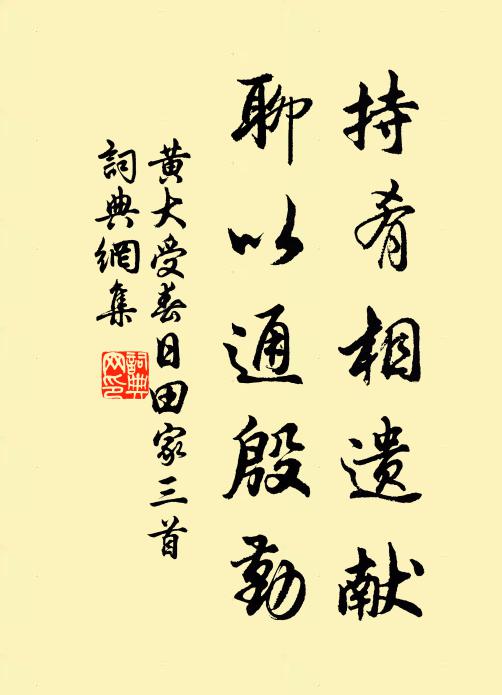 持肴相遗献
聊以通殷勤
黄大受春日田家三首
詞典網集
詞典網印